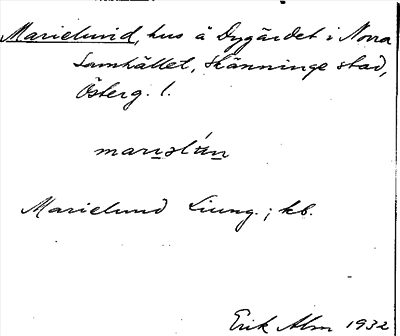 Marielund, hus å Dygärdet i Norra
Samhället, Skänninge stad,
Österg. l.
Marielund Liung.; kb.
Erik Alm 1932